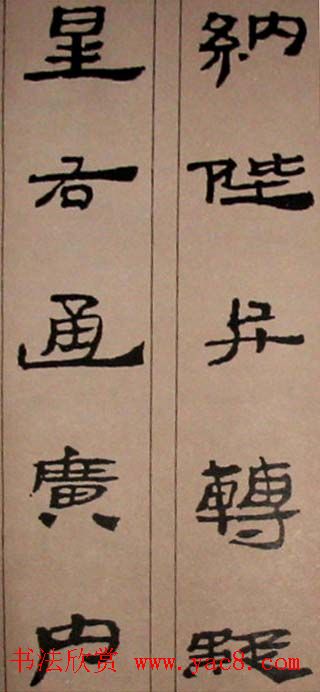 納陛弁轉疑
星右通廣内
书法欣赏 www.yac8.com